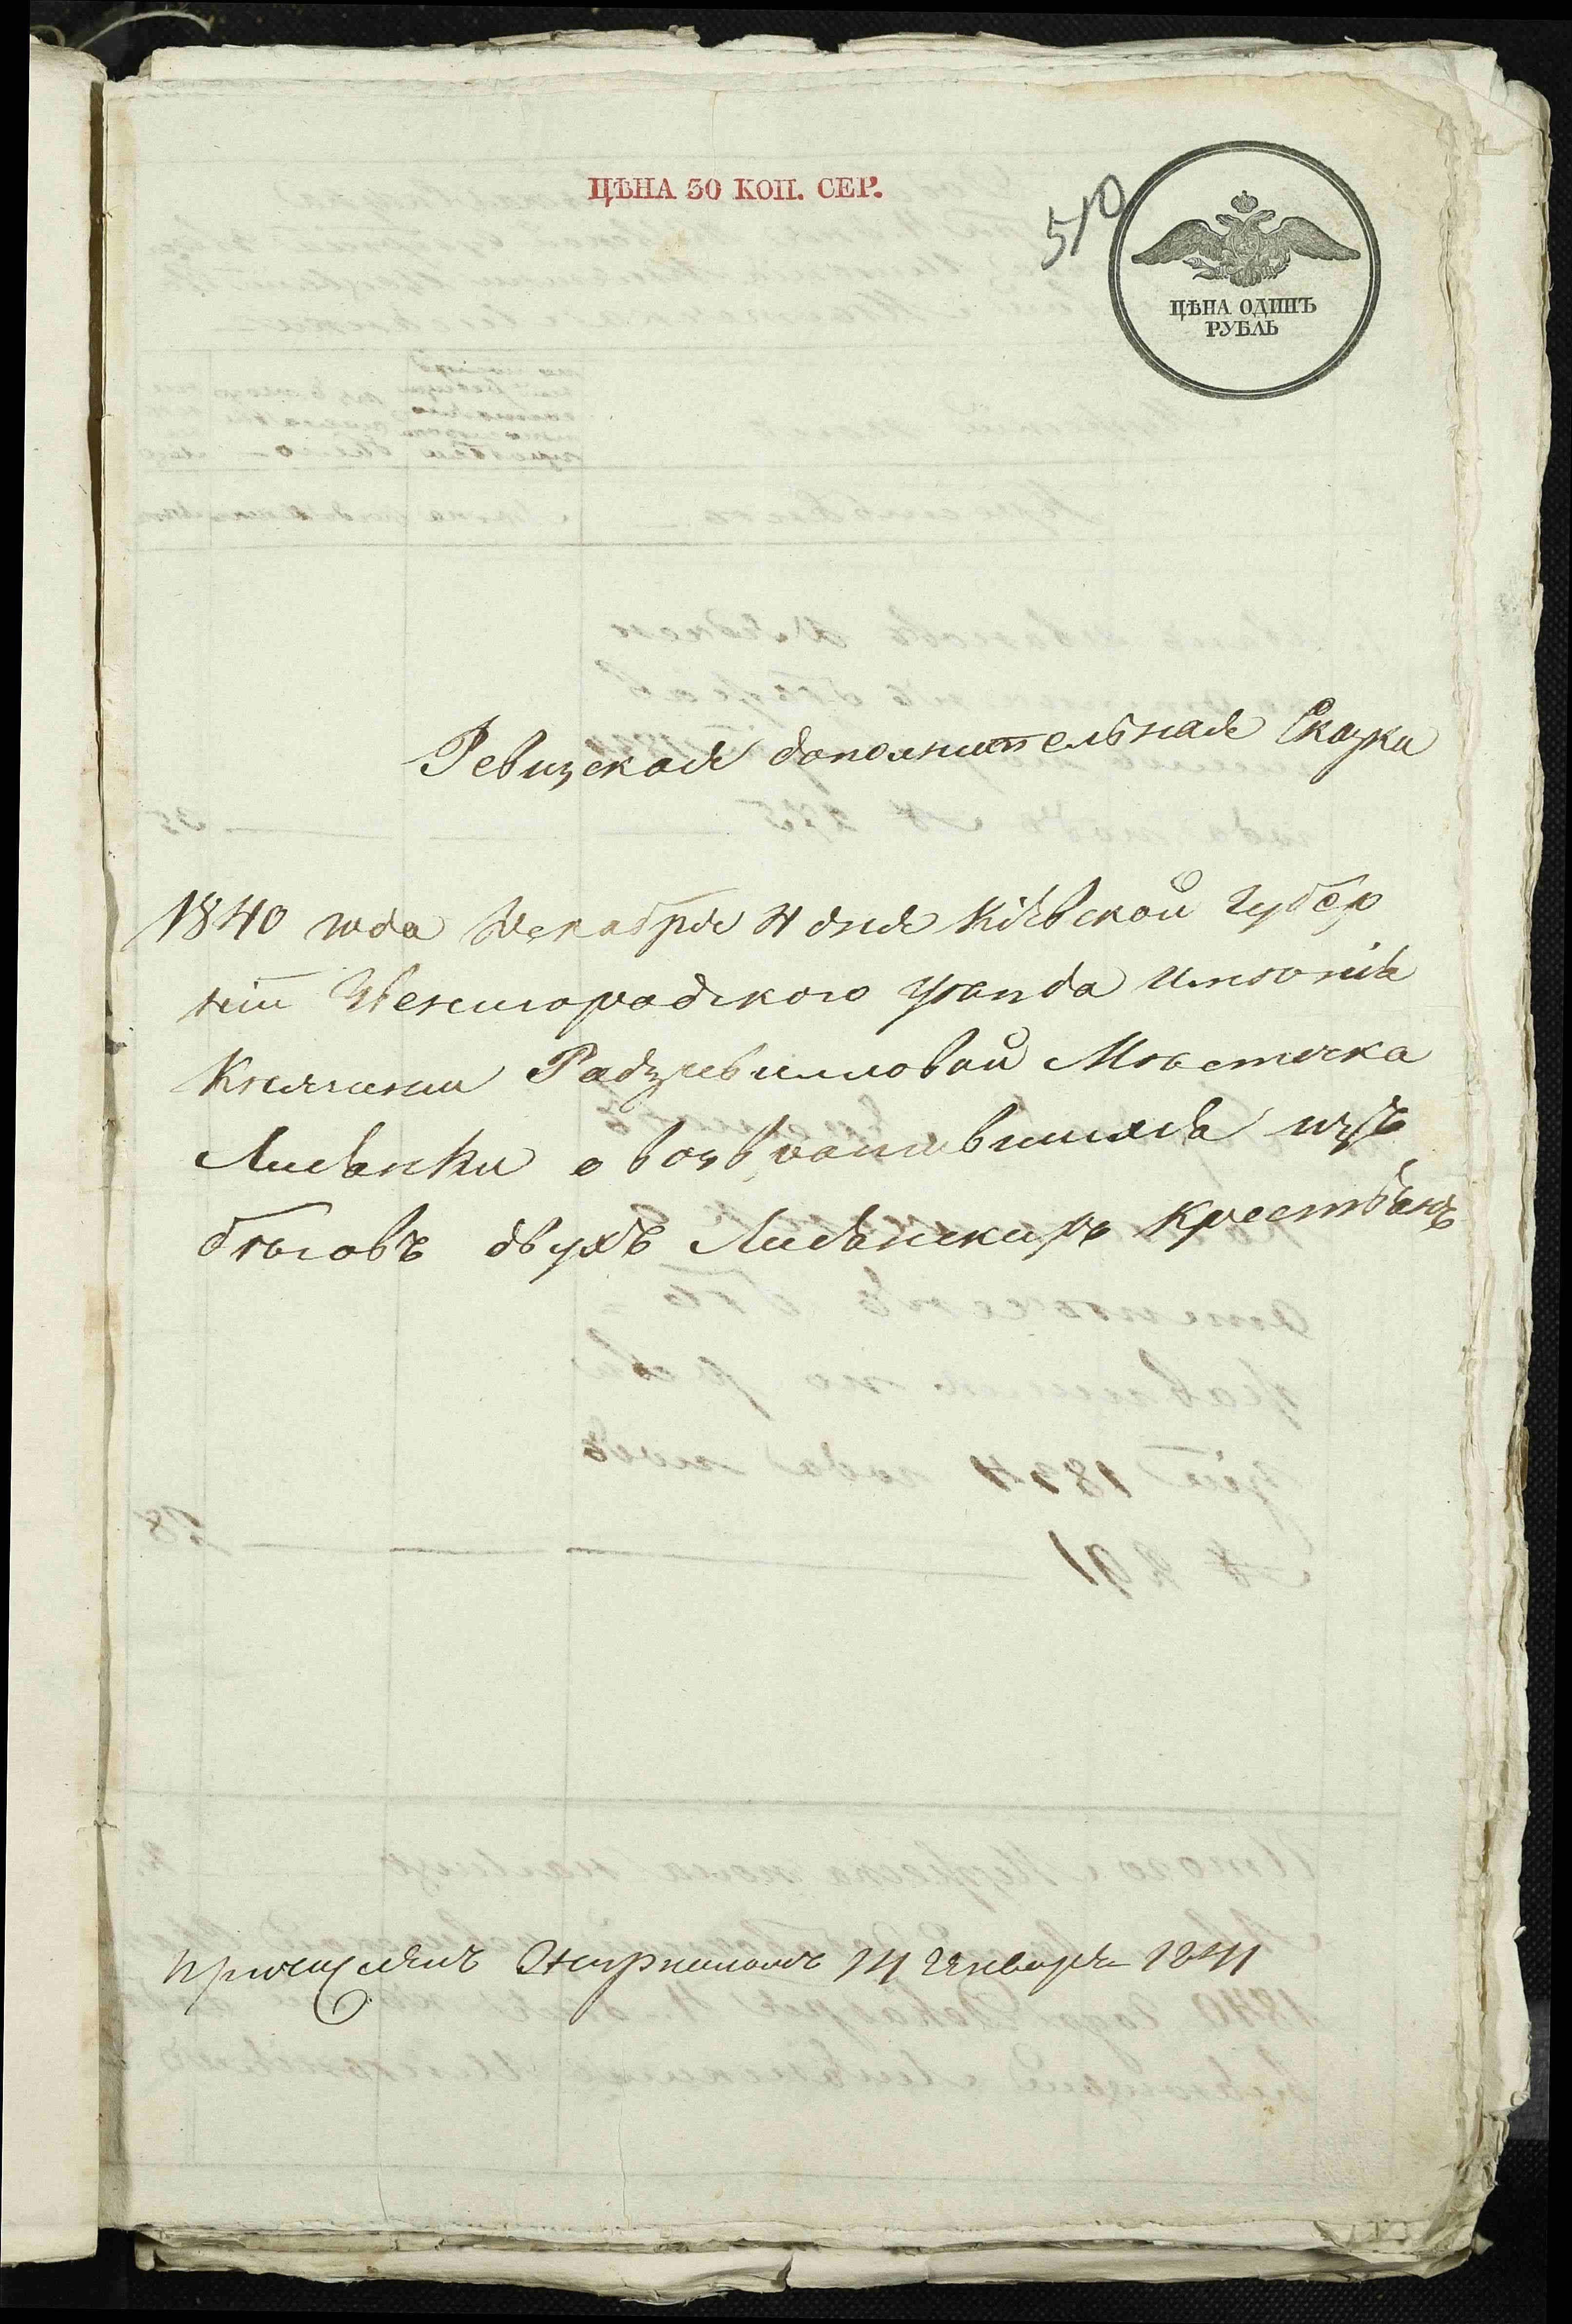 ЦѢНА 30 КОП. СЕР.
510
ЦѢНА ОДИНЪ
РУБЛЬ
Ревизская дополнительная Сказка
1840 года Декабря 4 дня Кіевской Губер
ніи Звенигородского уѣзда имѣнія
Княгини Радзивилловой Мѣстечка
Лисянки о возвратившихся изъ
бѣговъ двухъ Лисянскихъ крестьянъ
14 Января 1841